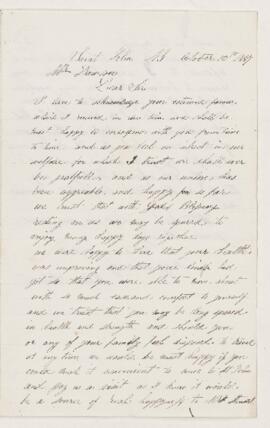 Saint John N.B. October 10th 1867
Mr Thomson
Dear Sir
I have to acknowledge your esteemed favour
which I received in due time and shall be
most happy to correspond with you from time
to time and as you feel an interest in our
welfare for which I trust we shall ever
be grateful and as our union has
been agreeable and happy so far
we trust that with Gods Blessing
resting on us we may be spared to
enjoy many happy days together
we were happy to hear that your health
was improving and that your had
got so that you were able to move about
with so much ease and comfort to yourself
and we trust that you may be long spared
in health and strength and should you
or any of your family feel disposed to travel
at any time we would be most happy if you
could make it convenient to come to St John
and pay us a visit as I know it would
be a source of real happiness to Mrs Stewart